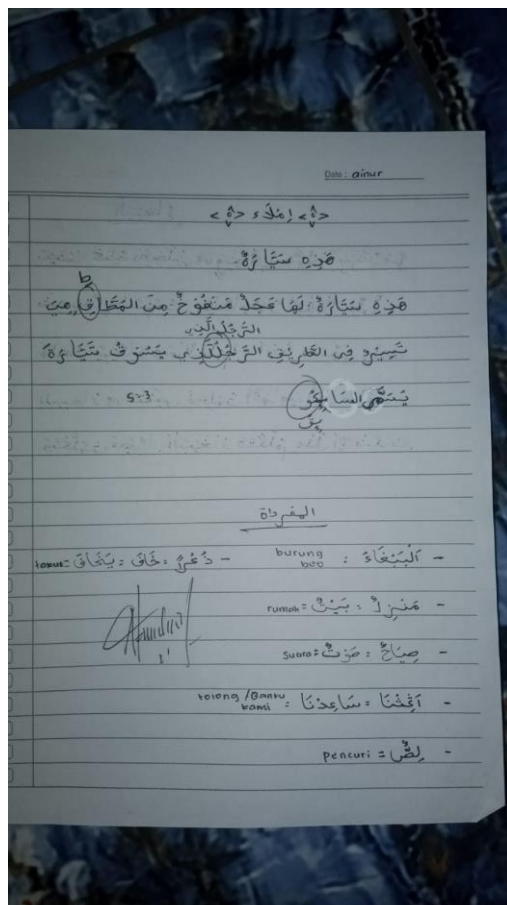 Date : ainur
< ؟ > إِمْلَاء < ؟ >
هَذِهِ سَيَّارَةٌ
ط
هَذِهِ سَيَّارَةٌ لَهَا عَجَلٌ مَنْفُوْخٌ مِنَ المَطَّاقِ هِيَ
الرَّجُلُ الَّذِي
تَسِيْرُ فِى الطَّرِيْقِ الرَّجُلُلَّذِي يَسُوْقُ سَيَّارَةً
يُسَمَّى السَا ئِقُو
5-3
ئِقَ
المفرداة
- اَلْبَبْغَاءَ : burung beo
- ذُعْرٌ = خَافَ = يَخَافَ = takut
- مَنْزِلٌ = بَيْتٌ = rumah
- صِيَاحٌ = صَوْتٌ = suara
- اَغِثْنَا = سَاعِدْنَا = tolong/Bantu kami
- لِصٌّ = pencuri